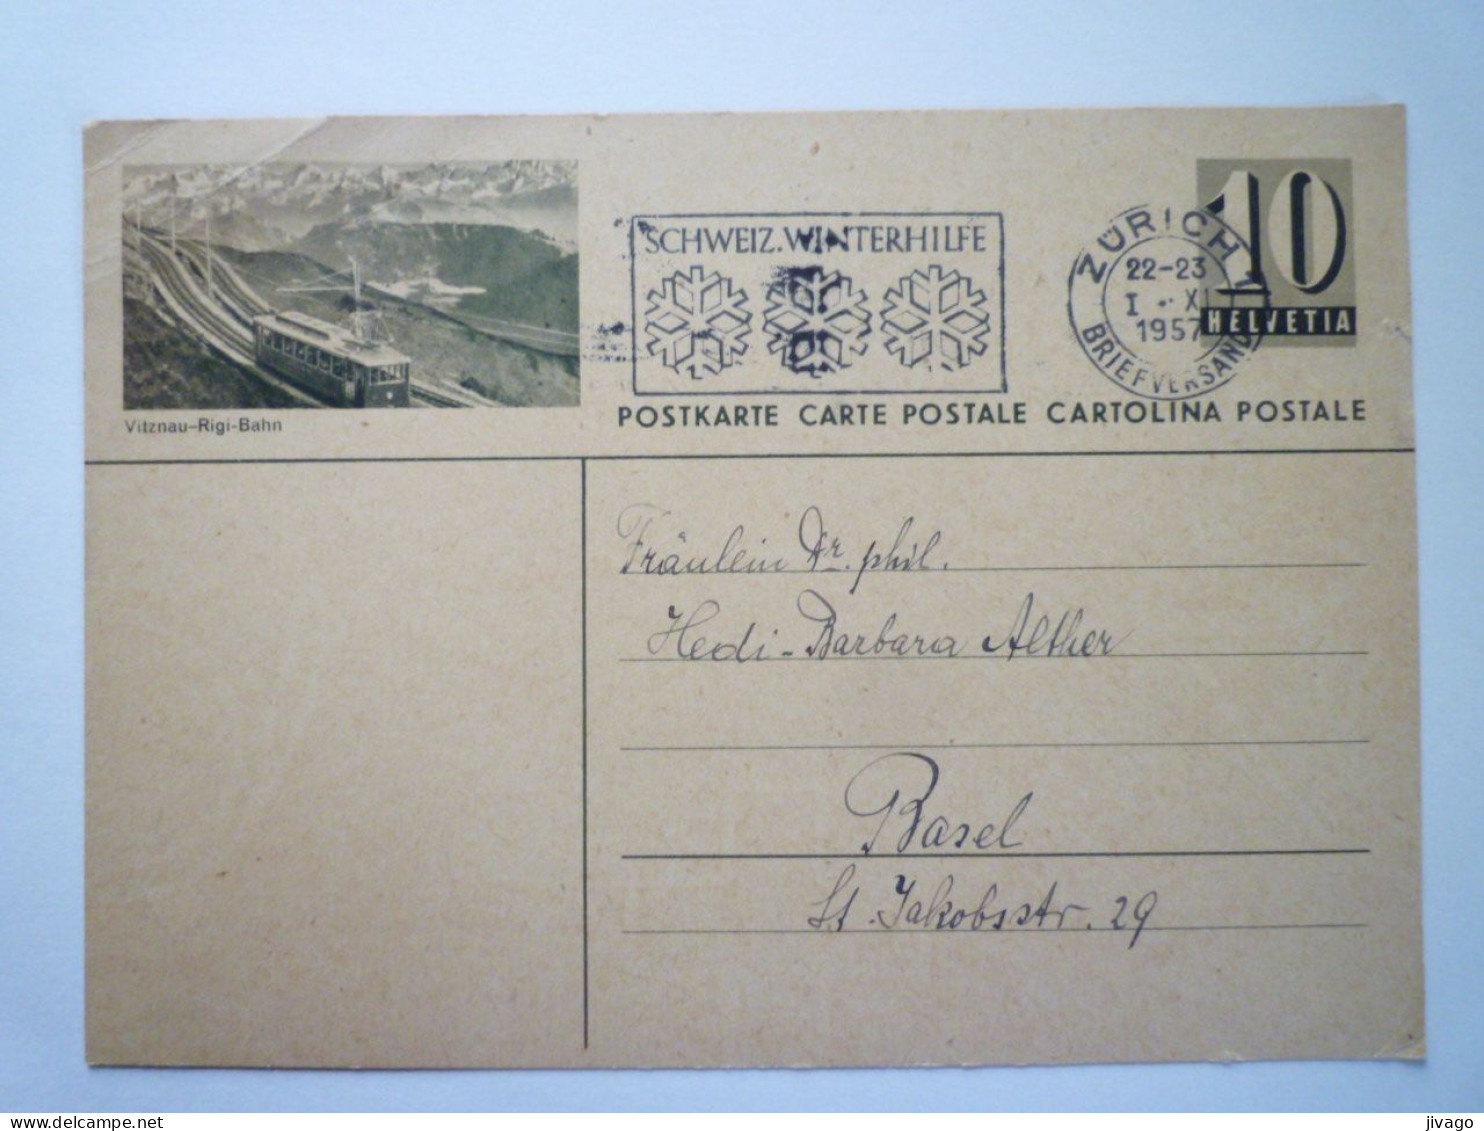 SCHWEIZ. WINTERHILFE
ZÜRICH 1
22-23
I. XI
1957
BRIEFVERSAND
10
HELVETIA
Vitznau-Rigi-Bahn
POSTKARTE CARTE POSTALE CARTOLINA POSTALE
Fräulein Dr. phil.
Hedi-Barbara Alther
Basel
St. Jakobsstr. 29
delcampe.net
jivago